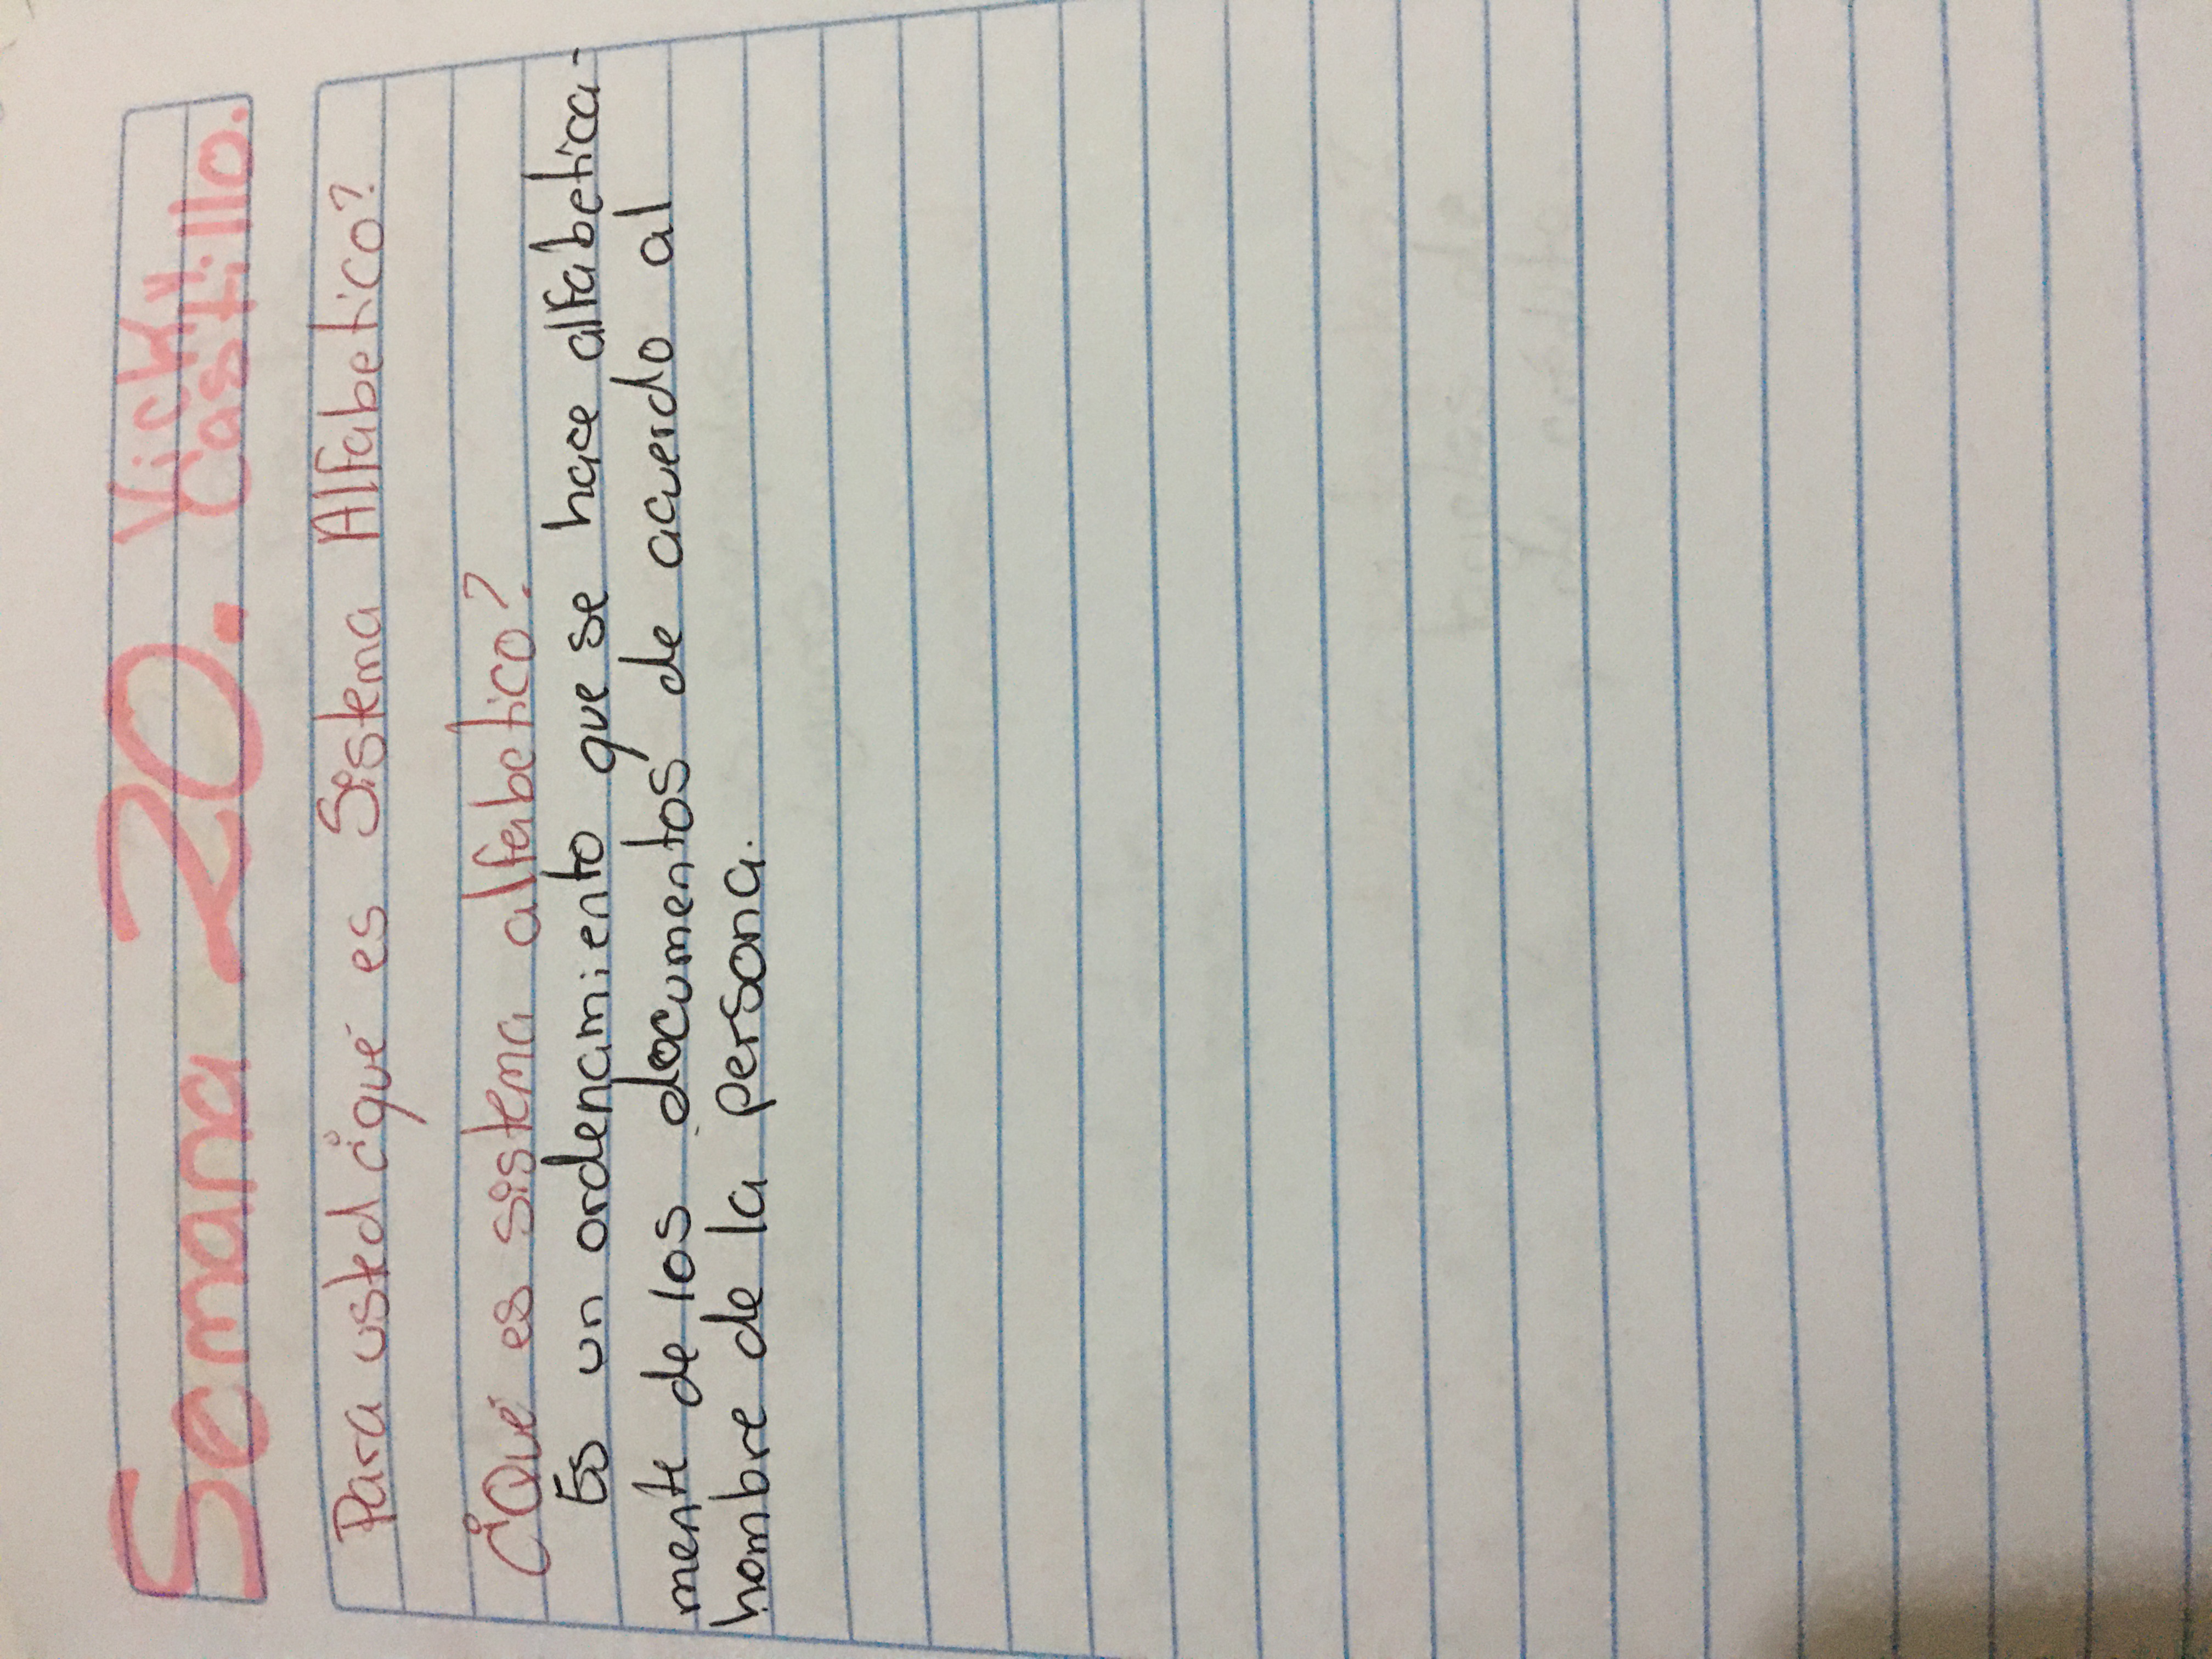 Semana 20. Vicky.
Castillo.
Para usted ¿qué es Sistema Alfabetico?
¿Qué es sistema alfabetico?
Es un ordenamiento que se hace alfabetica-
mente de los documentos de acuerdo al
nombre de la persona.